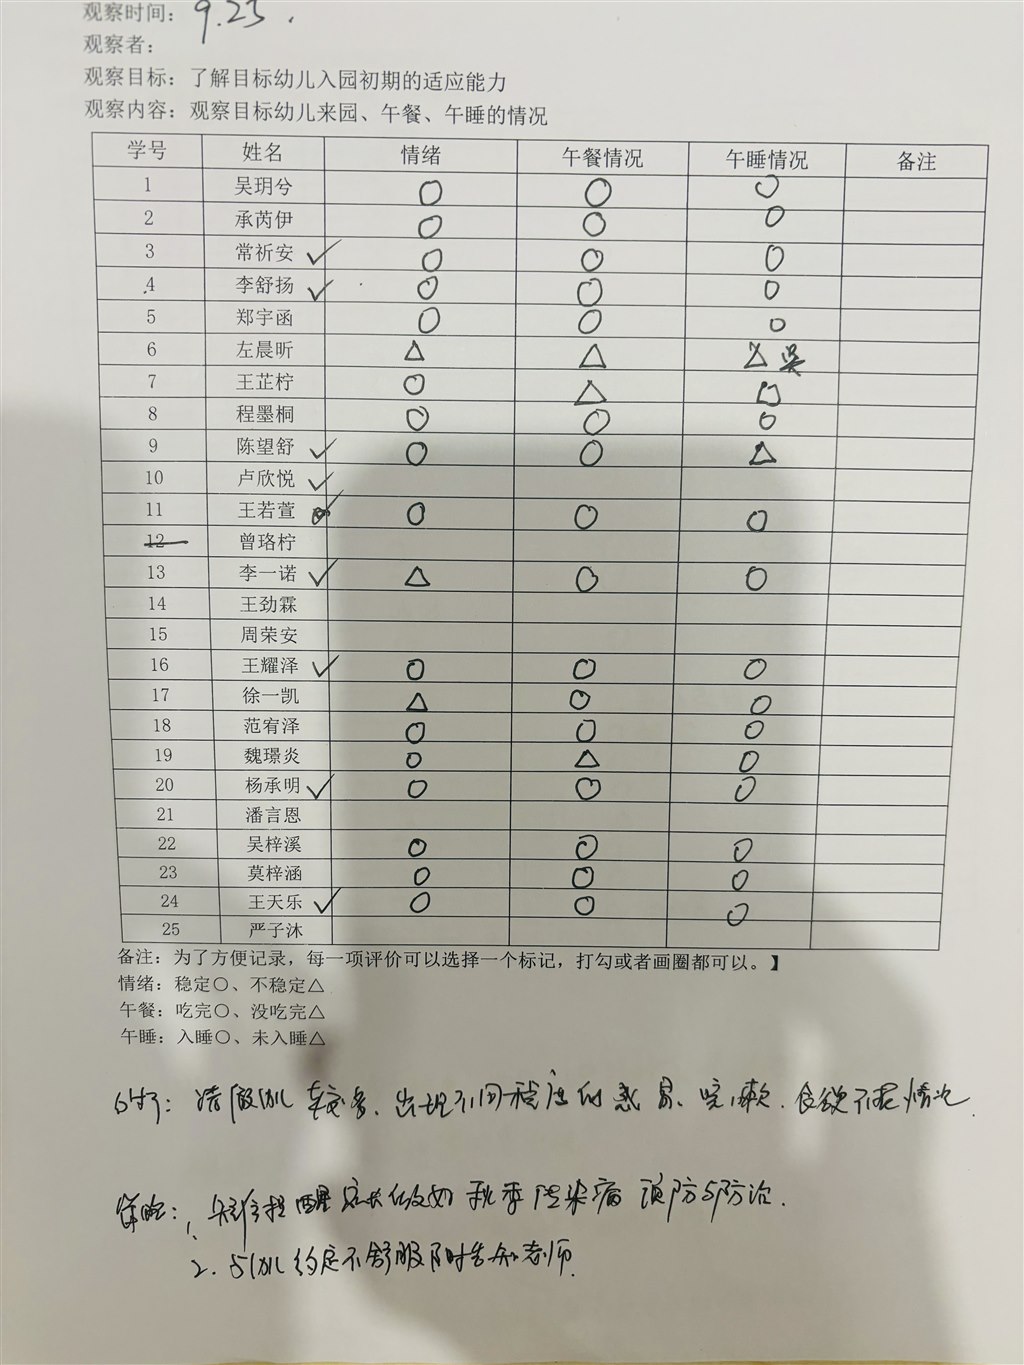 观察时间：9.23.
观察者：
观察目标：了解目标幼儿入园初期的适应能力
观察内容：观察目标幼儿来园、午餐、午睡的情况
学号 姓名 情绪 午餐情况 午睡情况 备注
1 吴玥兮 ○ ○ ○
2 承芮伊 ○ ○ ○
3 常祈安 ✓ ○ ○ ○
4 李舒扬 ✓ ○ ○ ○
5 郑宇函 ○ ○ ○
6 左晨昕 △ △ △ 哭
7 王芷柠 ○ △ ○
8 程墨桐 ○ ○ ○
9 陈望舒 ✓ ○ ○ △
10 卢欣悦 ✓
11 王若萱 ✓ ○ ○ ○
12 曾珞柠
13 李一诺 ✓ △ ○ ○
14 王劲霖
15 周荣安
16 王耀泽 ✓ ○ ○ ○
17 徐一凯 △ ○ ○
18 范宥泽 ○ ○ ○
19 魏璟炎 ○ △ ○
20 杨承明 ✓ ○ ○ ○
21 潘言恩
22 吴梓溪 ○ ○ ○
23 莫梓涵 ○ ○ ○
24 王天乐 ✓ ○ ○ ○
25 严子沐
备注：为了方便记录，每一项评价可以选择一个标记，打勾或者画圈都可以。】
情绪：稳定○、不稳定△
午餐：吃完○、没吃完△
午睡：入睡○、未入睡△
分析：请假幼儿较多、出现不同程度的感冒、咳嗽、食欲不振情况
策略：1、提醒家长做好秋季传染病预防与防治.
2. 与幼儿约定不舒服及时告知老师.